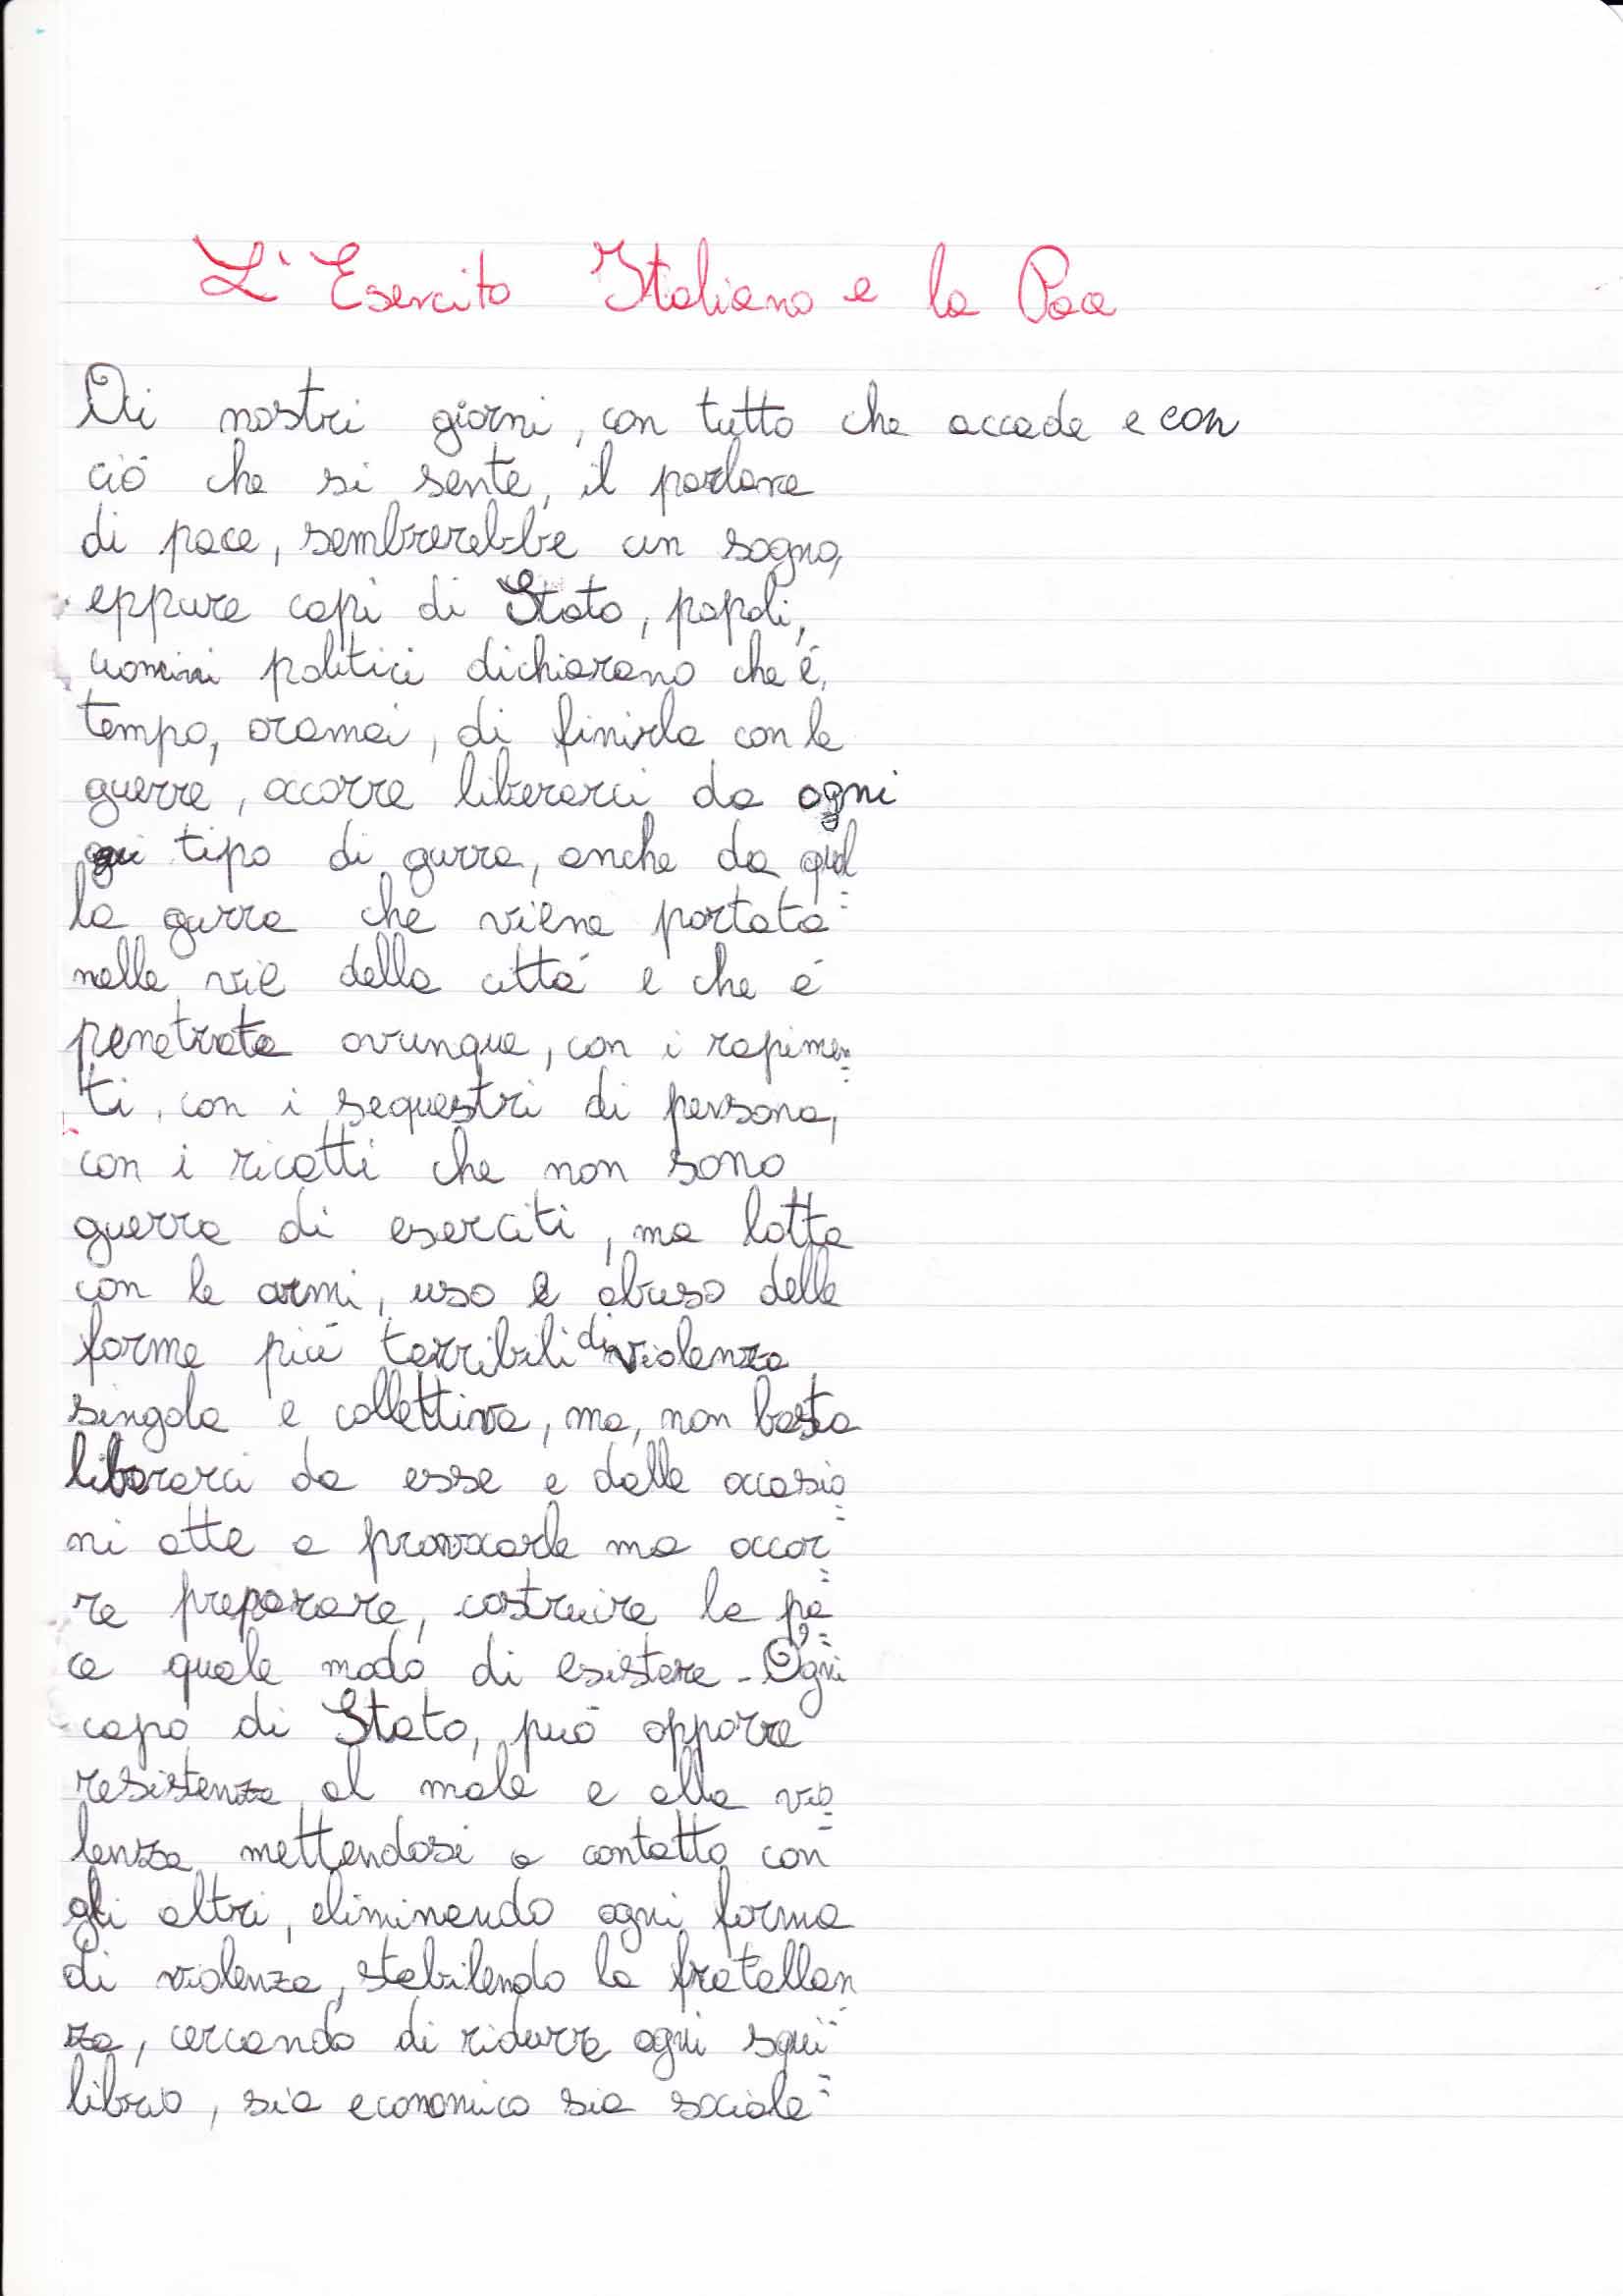 L'Esercito Italiano e la Pace
Di nostri giorni, con tutto che accade e con
ciò che si sente, il parlare
di pace, sembrerebbe un sogno,
eppure capi di Stato, popoli,
uomini politici dichiarano che è
tempo, oramai, di finirla con le
guerre, occorre liberarci da ogni
tipo di gurra, anche da quel=
la gurra che viene portata
nelle vie della città e che è
penetrata ovunque, con i rapimen=
ti, con i sequestri di persona,
con i ricatti che non sono
guerra di eserciti, ma lotta
con le armi, uso e abuso delle
forme più terribili di violenza
singola e collettiva, ma, non basta
liberarci da esse e dalle occasio=
ni atte a provocarle ma occor=
re preparare, costruire la pa=
ce quale modo di esistere - Ogni
capo di Stato, può opporre
resistenza al male e alla vio=
lenza mettendosi a contatto con
gli altri, eliminando ogni forma
di violenza, stabilendo la fratellan=
za, cercando di ridurre ogni squi=
librio, sia economico sia sociale